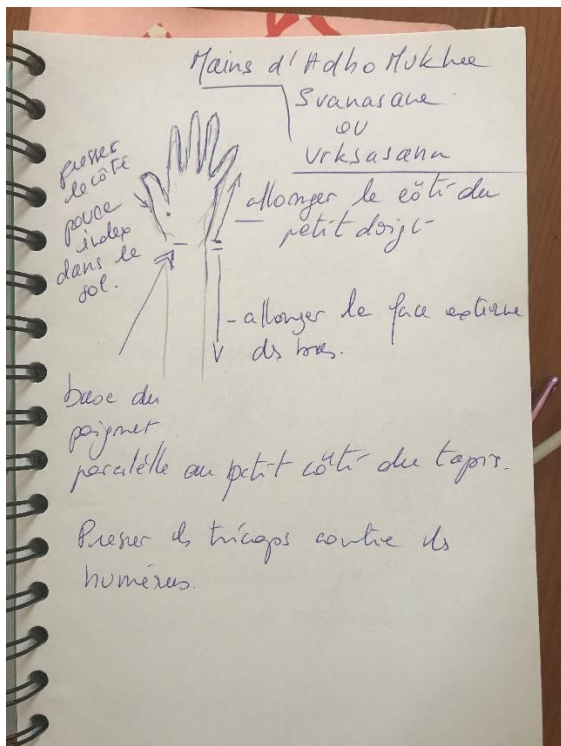 Mains d'Adho Mukhee
Svanasana
ou
Vrksasana
presser
le côté
pouce
index
dans le
sol.
- allonger le côté du
petit doigt
- allonger la face externe
ds bras.
base du
poignet
parallèle au petit côté du tapis.
Presser ls triceps contre ls
humérus.